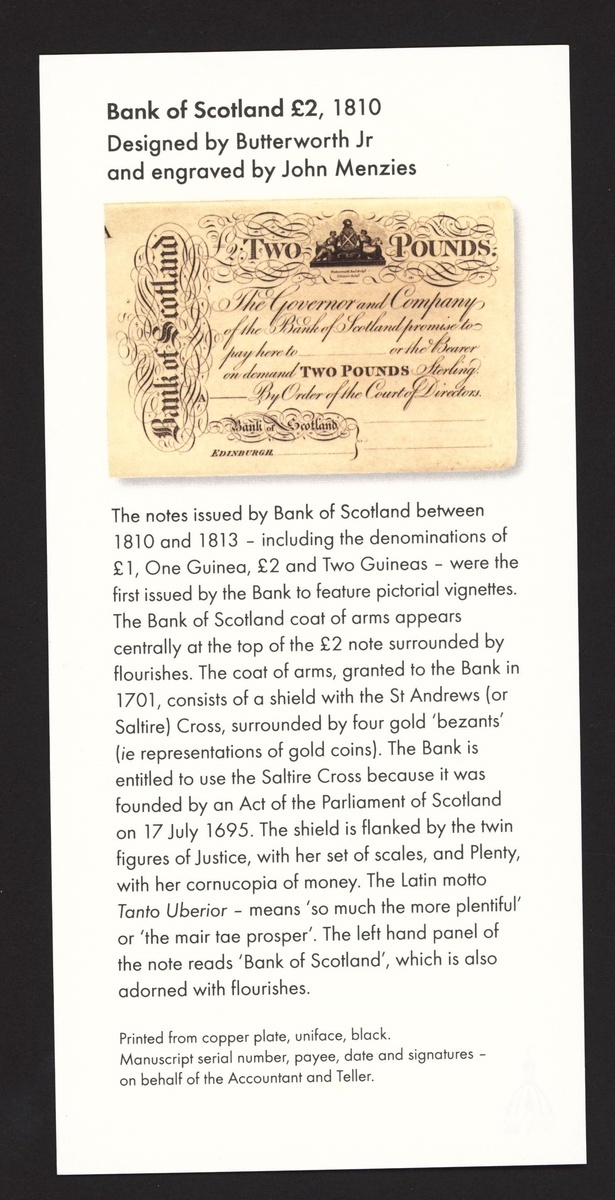 Bank of Scotland £2, 1810
Designed by Butterworth Jr
and engraved by John Menzies
Bank of Scotland
£2: TWO POUNDS.
The Governor and Company
of the Bank of Scotland promise to
pay here to or the Bearer
on demand TWO POUNDS Sterling.
A By Order of the Court of Directors.
Bank of Scotland
EDINBURGH.
The notes issued by Bank of Scotland between
1810 and 1813 – including the denominations of
£1, One Guinea, £2 and Two Guineas – were the
first issued by the Bank to feature pictorial vignettes.
The Bank of Scotland coat of arms appears
centrally at the top of the £2 note surrounded by
flourishes. The coat of arms, granted to the Bank in
1701, consists of a shield with the St Andrews (or
Saltire) Cross, surrounded by four gold ‘bezants’
(ie representations of gold coins). The Bank is
entitled to use the Saltire Cross because it was
founded by an Act of the Parliament of Scotland
on 17 July 1695. The shield is flanked by the twin
figures of Justice, with her set of scales, and Plenty,
with her cornucopia of money. The Latin motto
Tanto Uberior – means ‘so much the more plentiful’
or ‘the mair tae prosper’. The left hand panel of
the note reads ‘Bank of Scotland’, which is also
adorned with flourishes.
Printed from copper plate, uniface, black.
Manuscript serial number, payee, date and signatures –
on behalf of the Accountant and Teller.